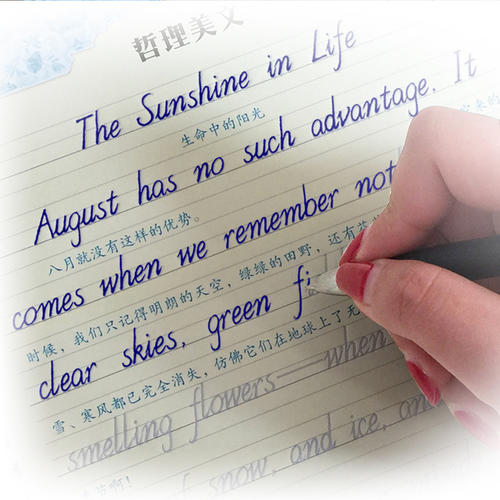 哲理美文
The Sunshine in Life
生命中的阳光
August has no such advantage. It
八月就没有这样的优势。
comes when we remember not
时候，我们只记得明朗的天空，绿绿的田野，还有
clear skies, green fi
雪、寒风都已完全消失，仿佛它们在地球上了无
smelling flowers—when
snow, and ice, and